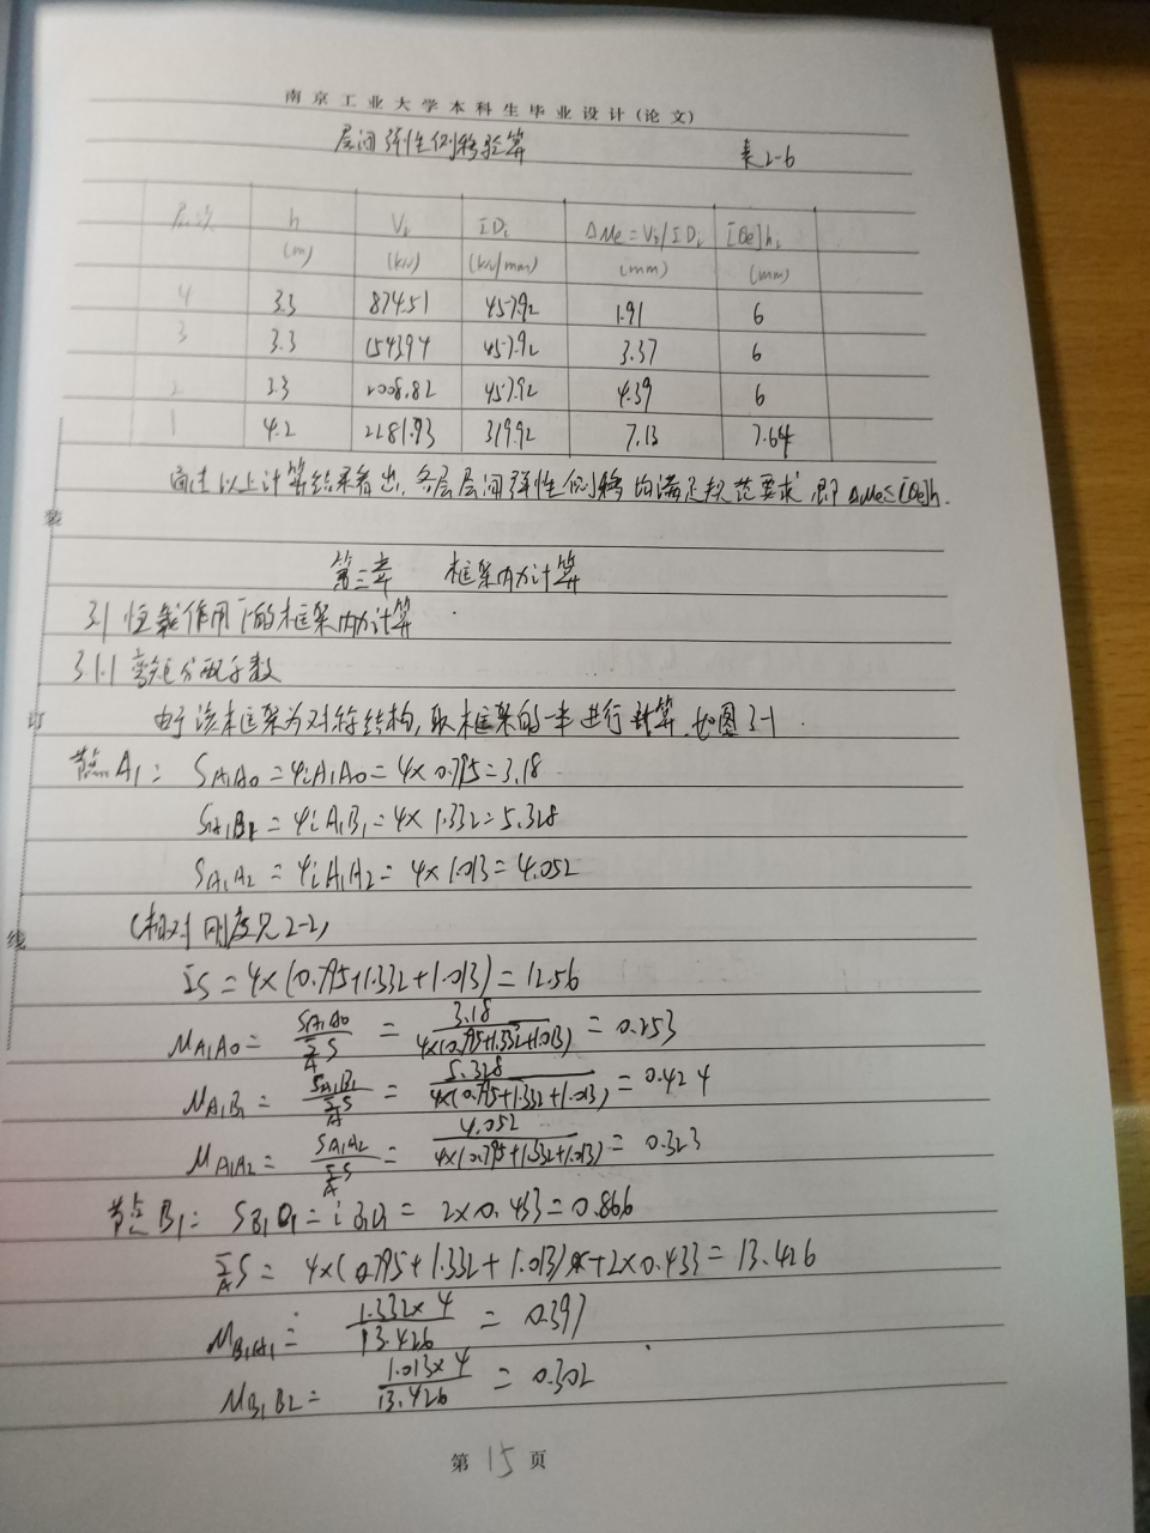 南京工业大学本科生毕业设计(论文)
层间弹性侧移验算 表2-6
层次 h Vi ΣDi ΔMe=Vi/ΣDi [θe]hi
(m) (kN) (kN/mm) (mm) (mm)
4 3.3 874.51 457.92 1.91 6
3 3.3 1543.94 457.92 3.37 6
2 3.3 2008.82 457.92 4.39 6
1 4.2 2281.93 319.92 7.13 7.64
通过以上计算结果看出,各层层间弹性侧移均满足规范要求,即ΔMe≤[θe]h.
装
第三章 框架内力计算
3.1 恒载作用下的框架内力计算
3.1.1 弯矩分配系数
订
由于该框架为对称结构,取框架的一半进行计算,如图3-1.
节点A1: SA1A0=4iA1A0=4×0.795=3.18
SA1B1=4iA1B1=4×1.332=5.328
SA1A2=4iA1A2=4×1.013=4.052
线
(相对刚度见2-2)
ΣS=4×(0.795+1.332+1.013)=12.56
μA1A0=SA1A0/ΣAS=3.18/4×(0.795+1.332+1.013)=0.253
μA1B1=SA1B1/ΣAS=5.328/4×(0.795+1.332+1.013)=0.424
μA1A2=SA1A2/ΣAS=4.052/4×(0.795+1.332+1.013)=0.323
节点B1: SB1D1=iB1D1=2×0.433=0.866
ΣAS=4×(0.795+1.332+1.013)+2×0.433=13.426
μB1A1=1.332×4/13.426=0.397
μB1B2=1.013×4/13.426=0.302
第15页